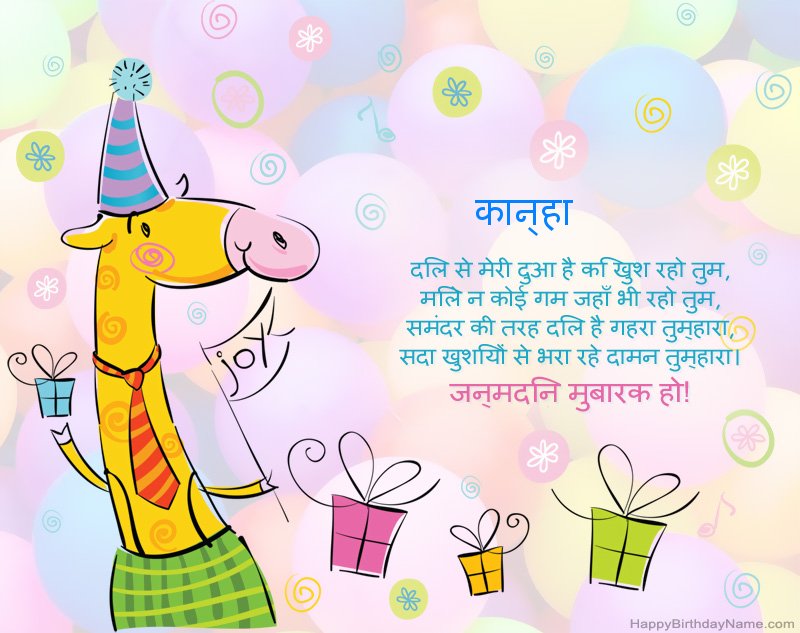 कान्हा
दिल से मेरी दुआ है कि खुश रहो तुम,
मिले न कोई गम जहाँ भी रहो तुम,
समंदर की तरह दिल है गहरा तुम्हारा,
सदा खुशियों से भरा रहे दामन तुम्हारा।
जन्मदिन मुबारक हो!
joy
HappyBirthdayName.com